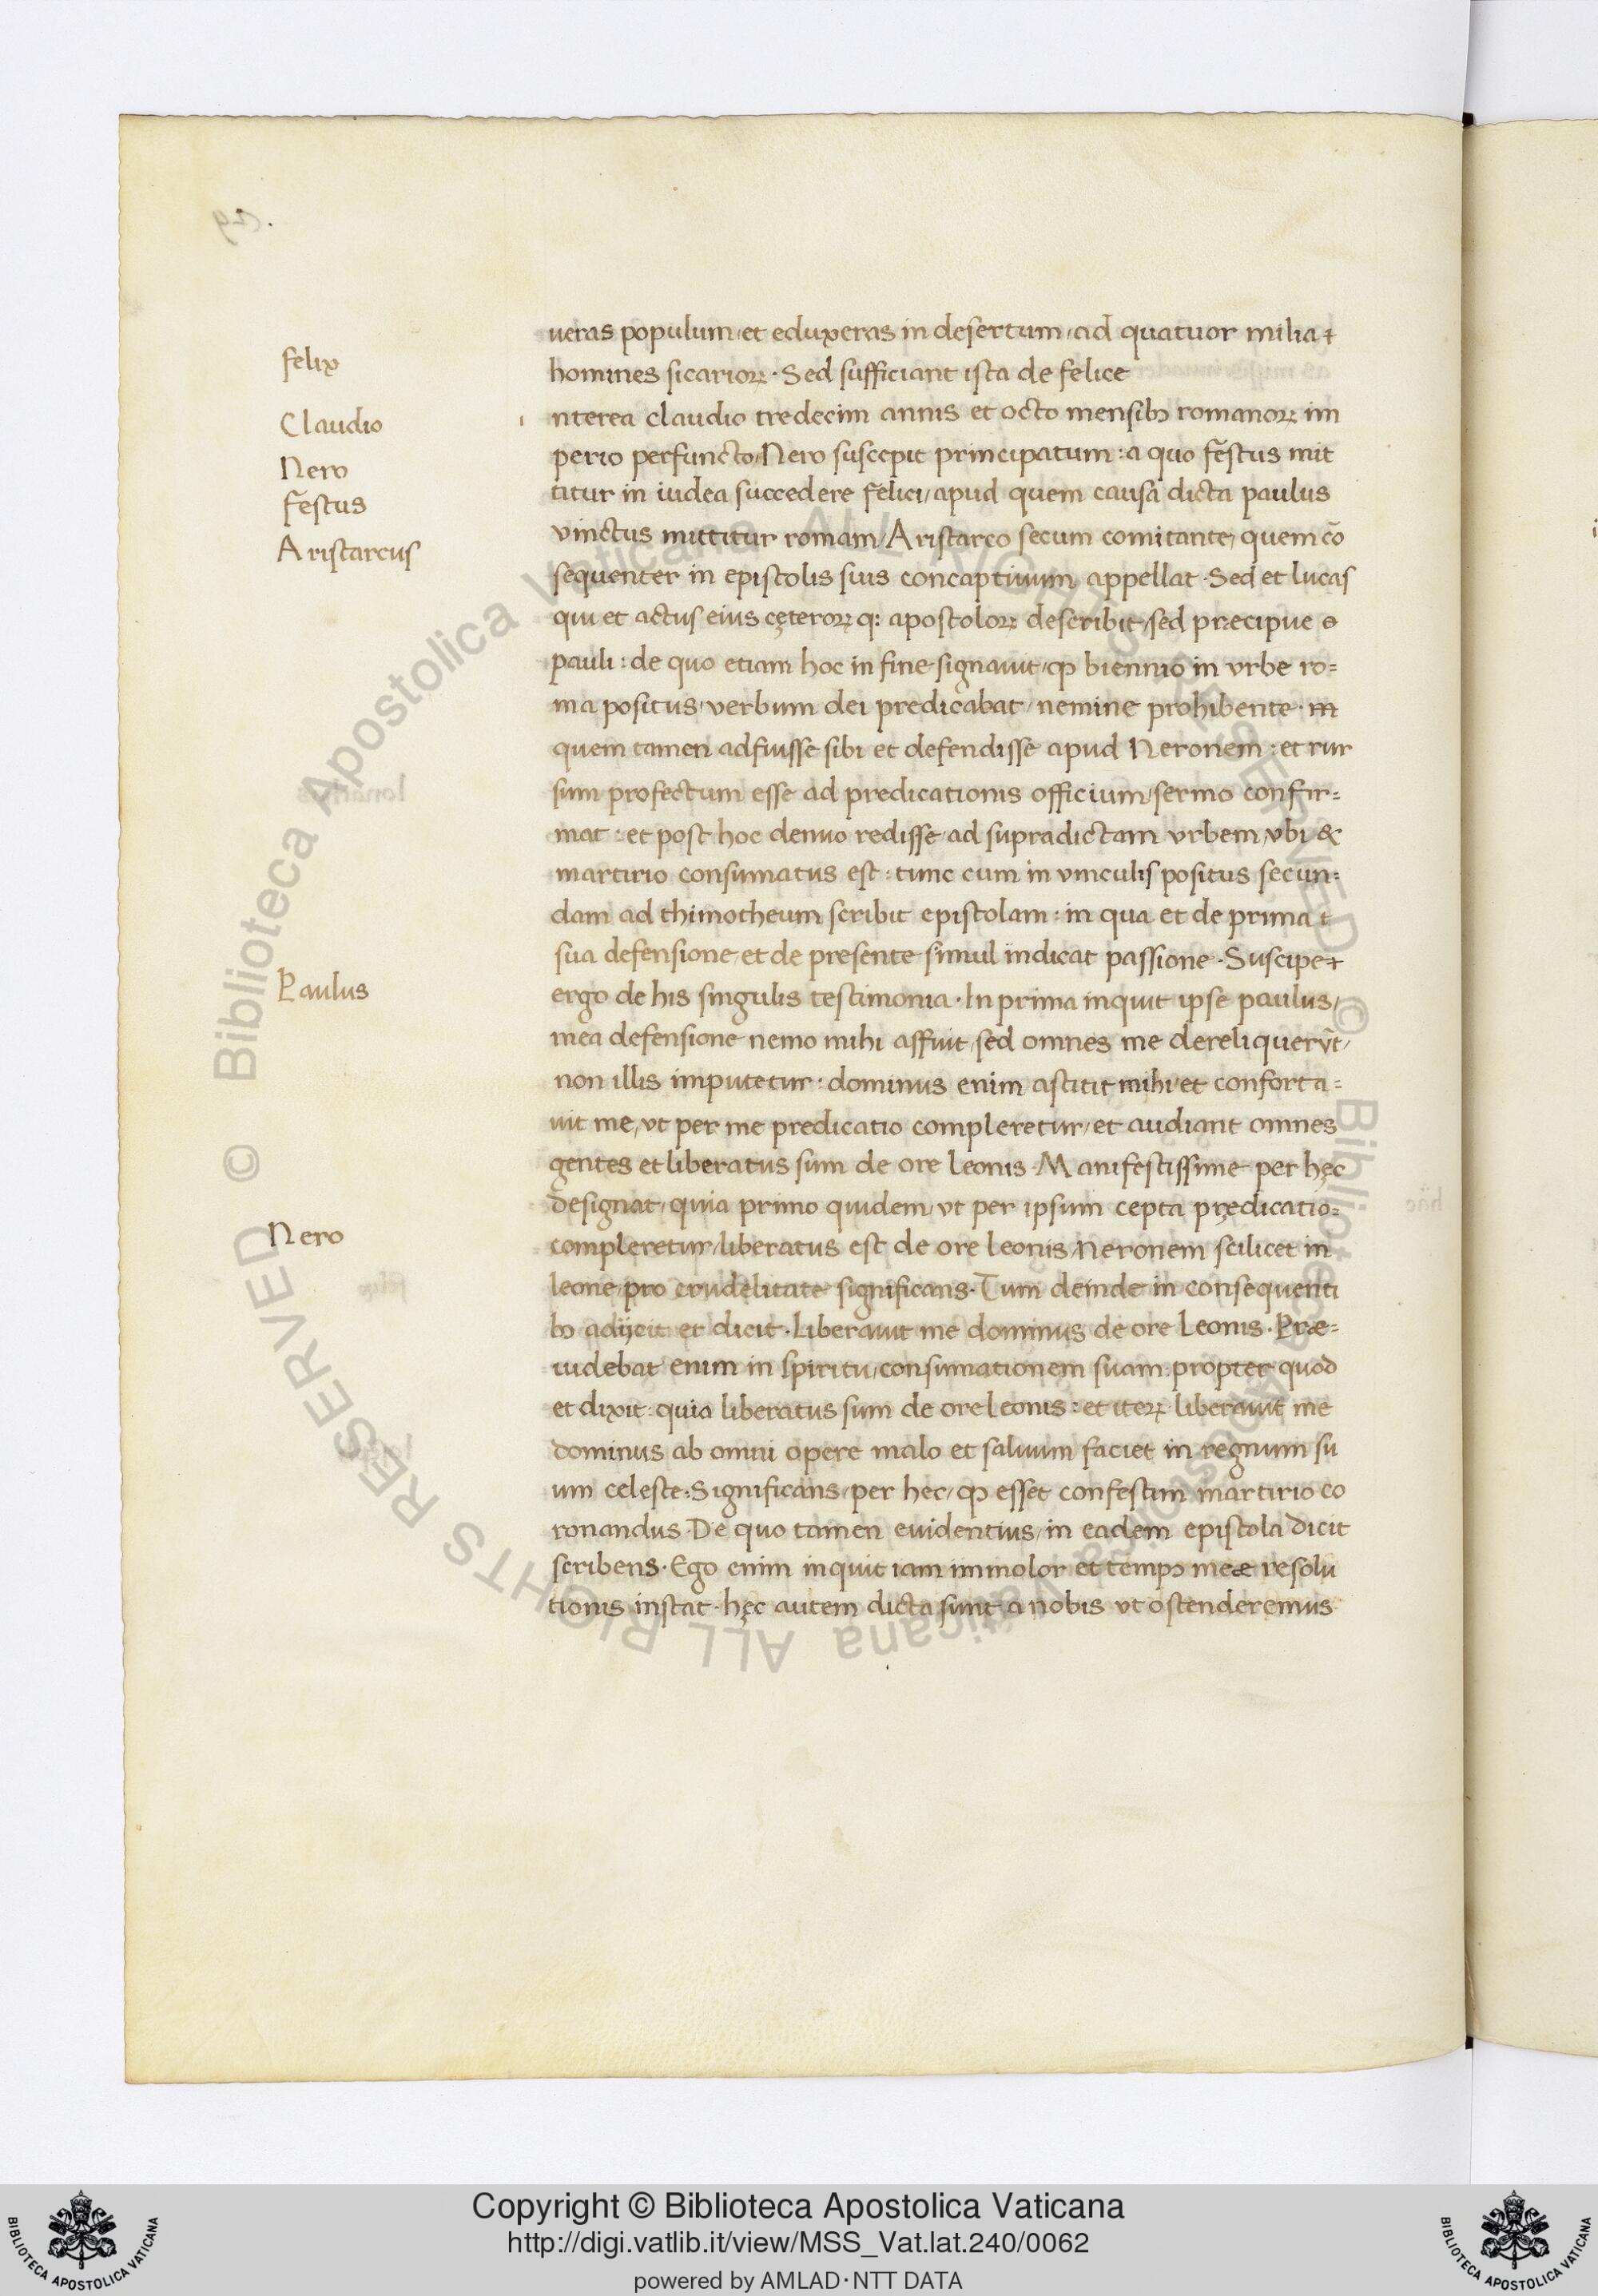 ueras populum / et eduxeras in desertum / ad quatuor milia
felix
homines sicarioꝝ · Sed sufficiant ista de felice
Claudio
ı nterea claudio tredecim annis et octo mensibꝫ romanoꝝ im
Nero
perio perfuncto / Nero suscepit principatum : a quo festus mit
festus
titur in iudea succedere felici / apud quem causa dicta paulus
Aristarcus
vinctus mittitur romam / Aristarco secum comitante / quem cõ
sequenter in epistolis suis concaptiuum appellat · Sed et lucas
qui et actus eius cęteroꝝ q: apostoloꝝ describit / sed præcipue
pauli : de quo etiam hoc in fine signauit / ꝙ biennio in vrbe ro=
ma positus / verbum dei predicabat / nemine prohibente ·
quem tamen adfuisse sibi et defendisse apud Neronem : et rur
sum profectum esse ad predicationis officium / sermo confir=
mat : et post hoc denuo redisse / ad supradictam vrbem / vbi &
martirio consumatus est : tunc cum in vinculis positus secun=
dam ad thimotheum scribit epistolam : in qua et de prima
sua defensione / et de presente simul indicat passione · Suscipe
Paulus
ergo de his singulis testimonia · In prima inquit ipse paulus /
mea defensione nemo mihi affuit / sed omnes me dereliquerv̄t /
non illis imputetur : dominus enim astitit mihi / et conforta=
uit me / vt per me predicatio compleretur / et audiant omnes
gentes et liberatus sum de ore leonis · Manifestissime per hęc
designat / quia primo quidem / vt per ipsum cepta pręedicatio=
Nero
compleretur / liberatus est de ore leonis / Neronem scilicet in
leone / pro crudelitate significans · Tum deinde in consequenti
bꝫ adijcit et dicit · Liberauit me dominus de ore Leonis · Præ=
uidebat enim in spiritu / consumationem suam · propter quod
et dixit : quia liberatus sum de ore leonis : et iteꝝ liberauit me
dominus ab omni opere malo et saluum faciet in regnum su
um celeste : Significans / per hec / ꝙ esset confestim martirio co
ronandus · De quo tamen euidentius / in eadem epistola dicit
scribens · Ego enim inquit iam immolor et tempꝰ meæ resolu
tionis instat · hęc autem dicta sunt a nobis vt ostenderemus
Copyright © Biblioteca Apostolica Vaticana
http://digi.vatlib.it/view/MSS_Vat.lat.240/0062
powered by AMLAD·NTT DATA
© Biblioteca Apostolica Vaticana ALL RIGHTS RESERVED
© Biblioteca Apostolica Vaticana ALL RIGHTS RESERVED
BIBLIOTECA APOSTOLICA VATICANA
BIBLIOTECA APOSTOLICA VATICANA